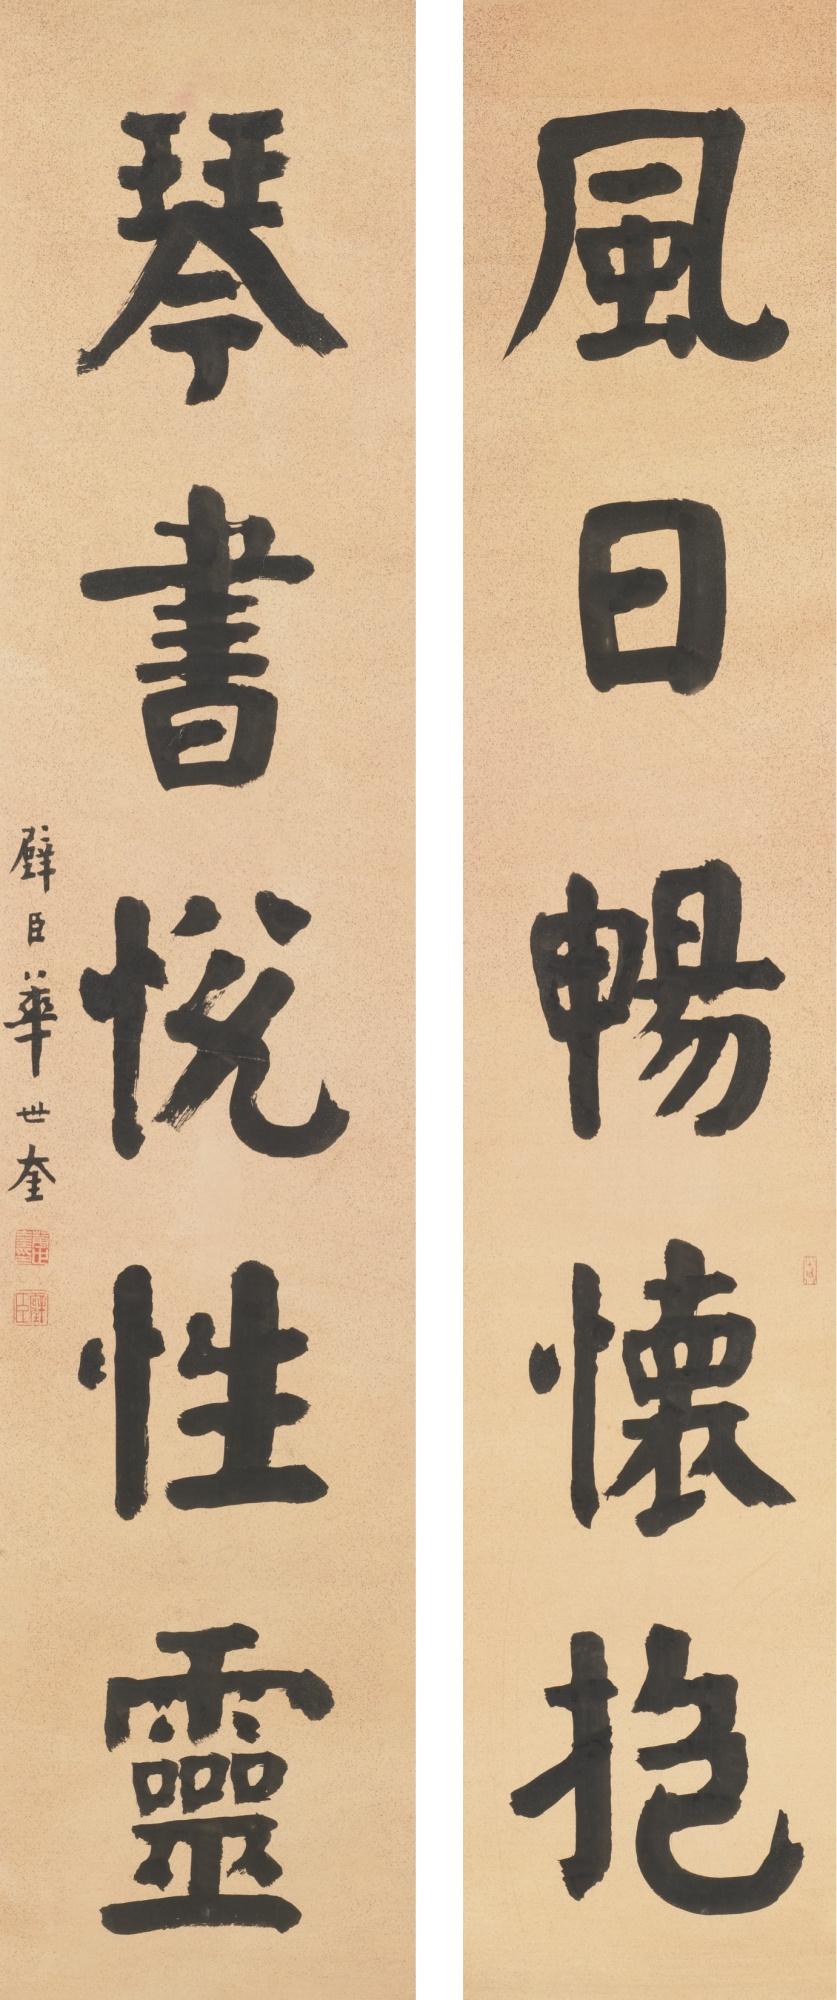 風日暢懷抱
琴書悦性靈
壁臣華世奎